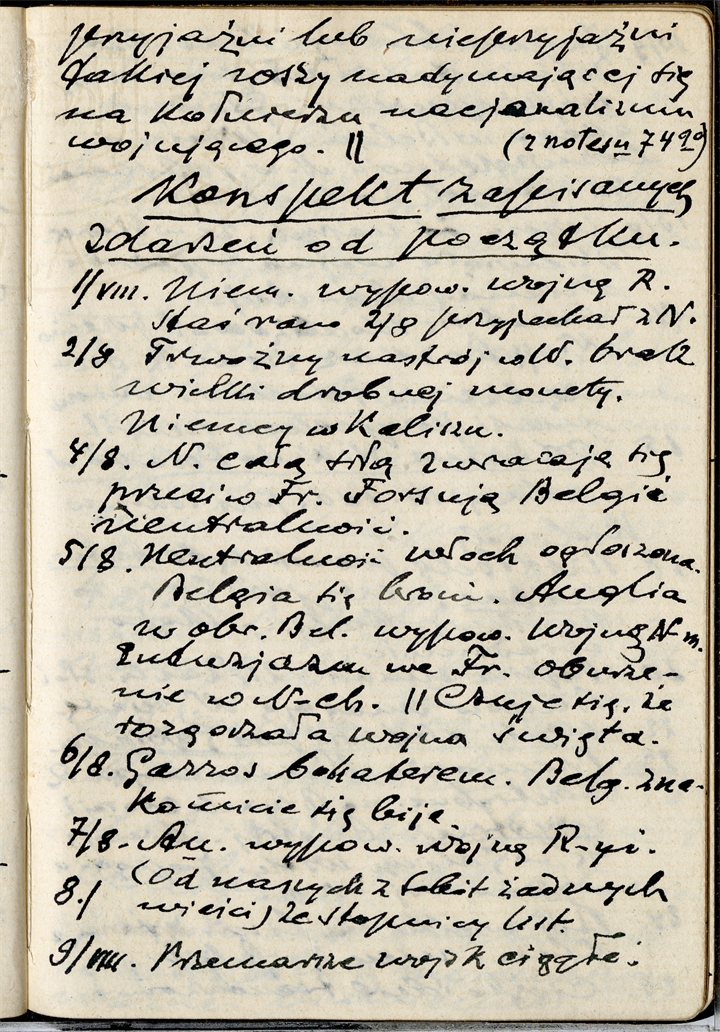 przyjaźni lub nieprzyjaźni
takiej rzeszy nadymającej się
na kołnierzu nacjonalizmu
wojującego. || (z notesu 74
Konspekt zapisanych
zdarzeń od początku.
1/VIII. Niem. wypow. wojnę R.
Staś rano 2/8 przyjechał z N.
2/8 Trwożny nastrój w W. brak
wielki drobnej monety.
Niemcy w Kaliszu.
4/8. N. całą siłą zwracają się
przeciw Fr. Forsują Belgię
neutralność.
5/8. Neutralność Włoch ogłoszona.
Belgia się broni. Anglia
w obr. Bel. wypow. wojnę N-m.
Entuzjazm we Fr. oburze-
nie w N-ch. || Czuje się, że
rozgorzała wojna święta.
6/8. Garros bohaterem. Belg. zna-
komicie się biją.
7/8. Au. wypow. wojnę R-yi.
8./ (Od naszych z żadnych
wieści) ze Stopnicy list.
9/VIII. Przemarsze wojsk ciągłe.